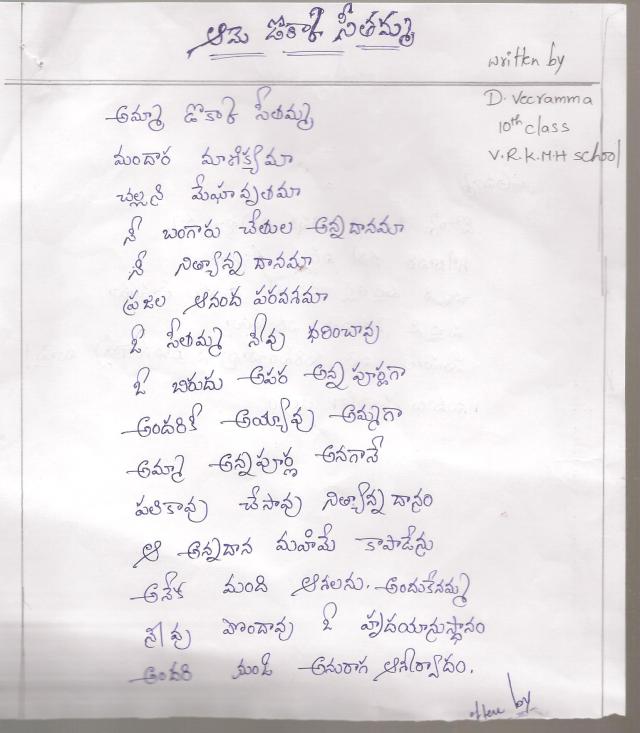 ఆమె డొక్కా సీతమ్మ
written by
D. Veeramma
10th class
V.R.K.M.H school
అమ్మా డొకారా సీతమ్మ
మందార మాణిక్యమా
చల్లని మేఘావృతమా
నీ బంగారు చేతుల అన్నదానమా
నీ నిత్యాన్నదానమా
ప్రజల ఆనంద పరవశమా
ఓ సీతమ్మ నీవు ధరించావు
ఓ బిరుదు అపర అన్నపూర్ణగా
అందరికీ అయ్యావు అమ్మగా
అమ్మా అన్నపూర్ణ అనగానే
పలికావు చేసావు నిత్యాన్నదానం
ఆ అన్నదాన మహిమే కాపాడేను
అనేక మంది ఆశలను. అందుకేనమ్మ
నీవు పొందావు ఓ హృదయానుస్థానం
అందరి నుండి అనురాగ ఆశీర్వాదం.
by